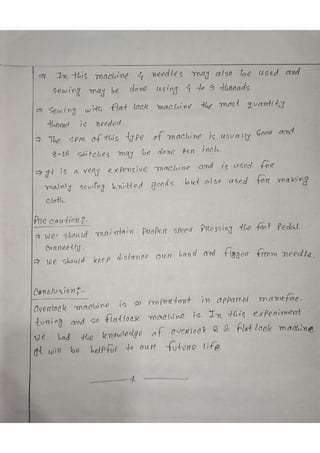 ⇒ In this machine 4 needles may also be used and
sewing may be done using 4 to 9 threads
⇒ Sewing with flat lock machine the most quantity
thread is needed.
⇒ The SPM of this type of machine is usually 6000 and
8-16 stitches may be done per inch.
⇒ It is a very expensive machine and is used for
mainly sewing knitted goods but also used for making
cloth.
Pre caution:-
⇒ We should maintain proper speed pressing the foot pedal
correctly.
⇒ We should keep distance our hand and figger from needle.
Conclusion:-
Overlock machine is so important in apparel manufac-
turing and so flatlock machine is. In this experiment
we had the knowledge of overlock & flatlock machine.
It will be helpful to our future life.
4